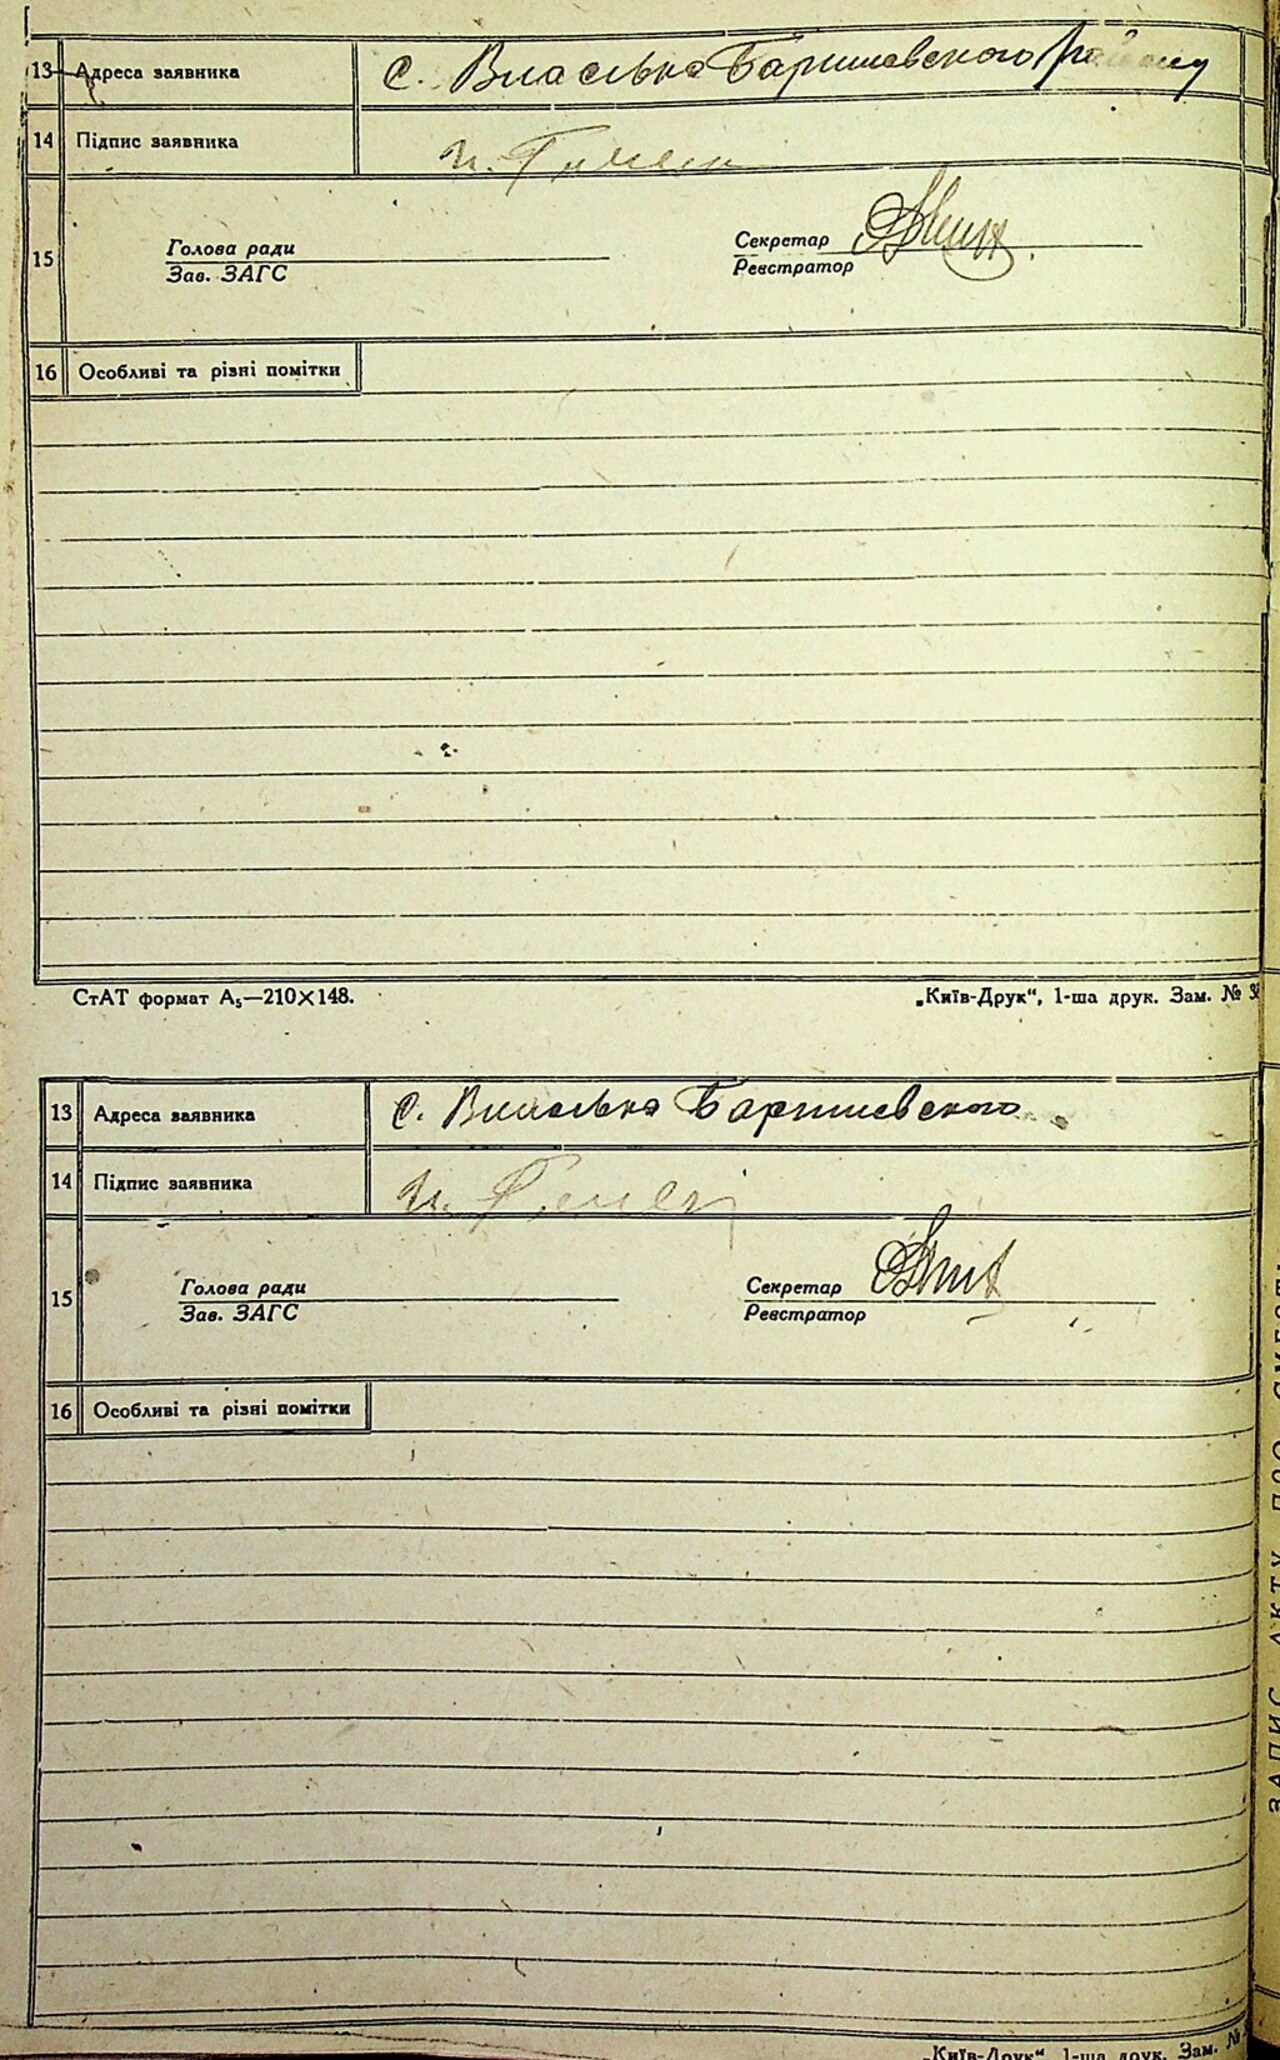 13 Адреса заявника с. Власівка Баришевского району
14 Підпис заявника
15 Голова ради Секретар
Зав. ЗАГС Реєстратор
16 Особливі та різні помітки
СтАТ формат А₅—210×148. „Київ-Друк“, 1-ша друк. Зам. № 3
13 Адреса заявника с. Власівка Баришевского
14 Підпис заявника
15 Голова ради Секретар
Зав. ЗАГС Реєстратор
16 Особливі та різні помітки
„Київ-Друк“ 1-ша друк. Зам. №
ЗАПИС АКТУ ПРО СМЕРТЬ